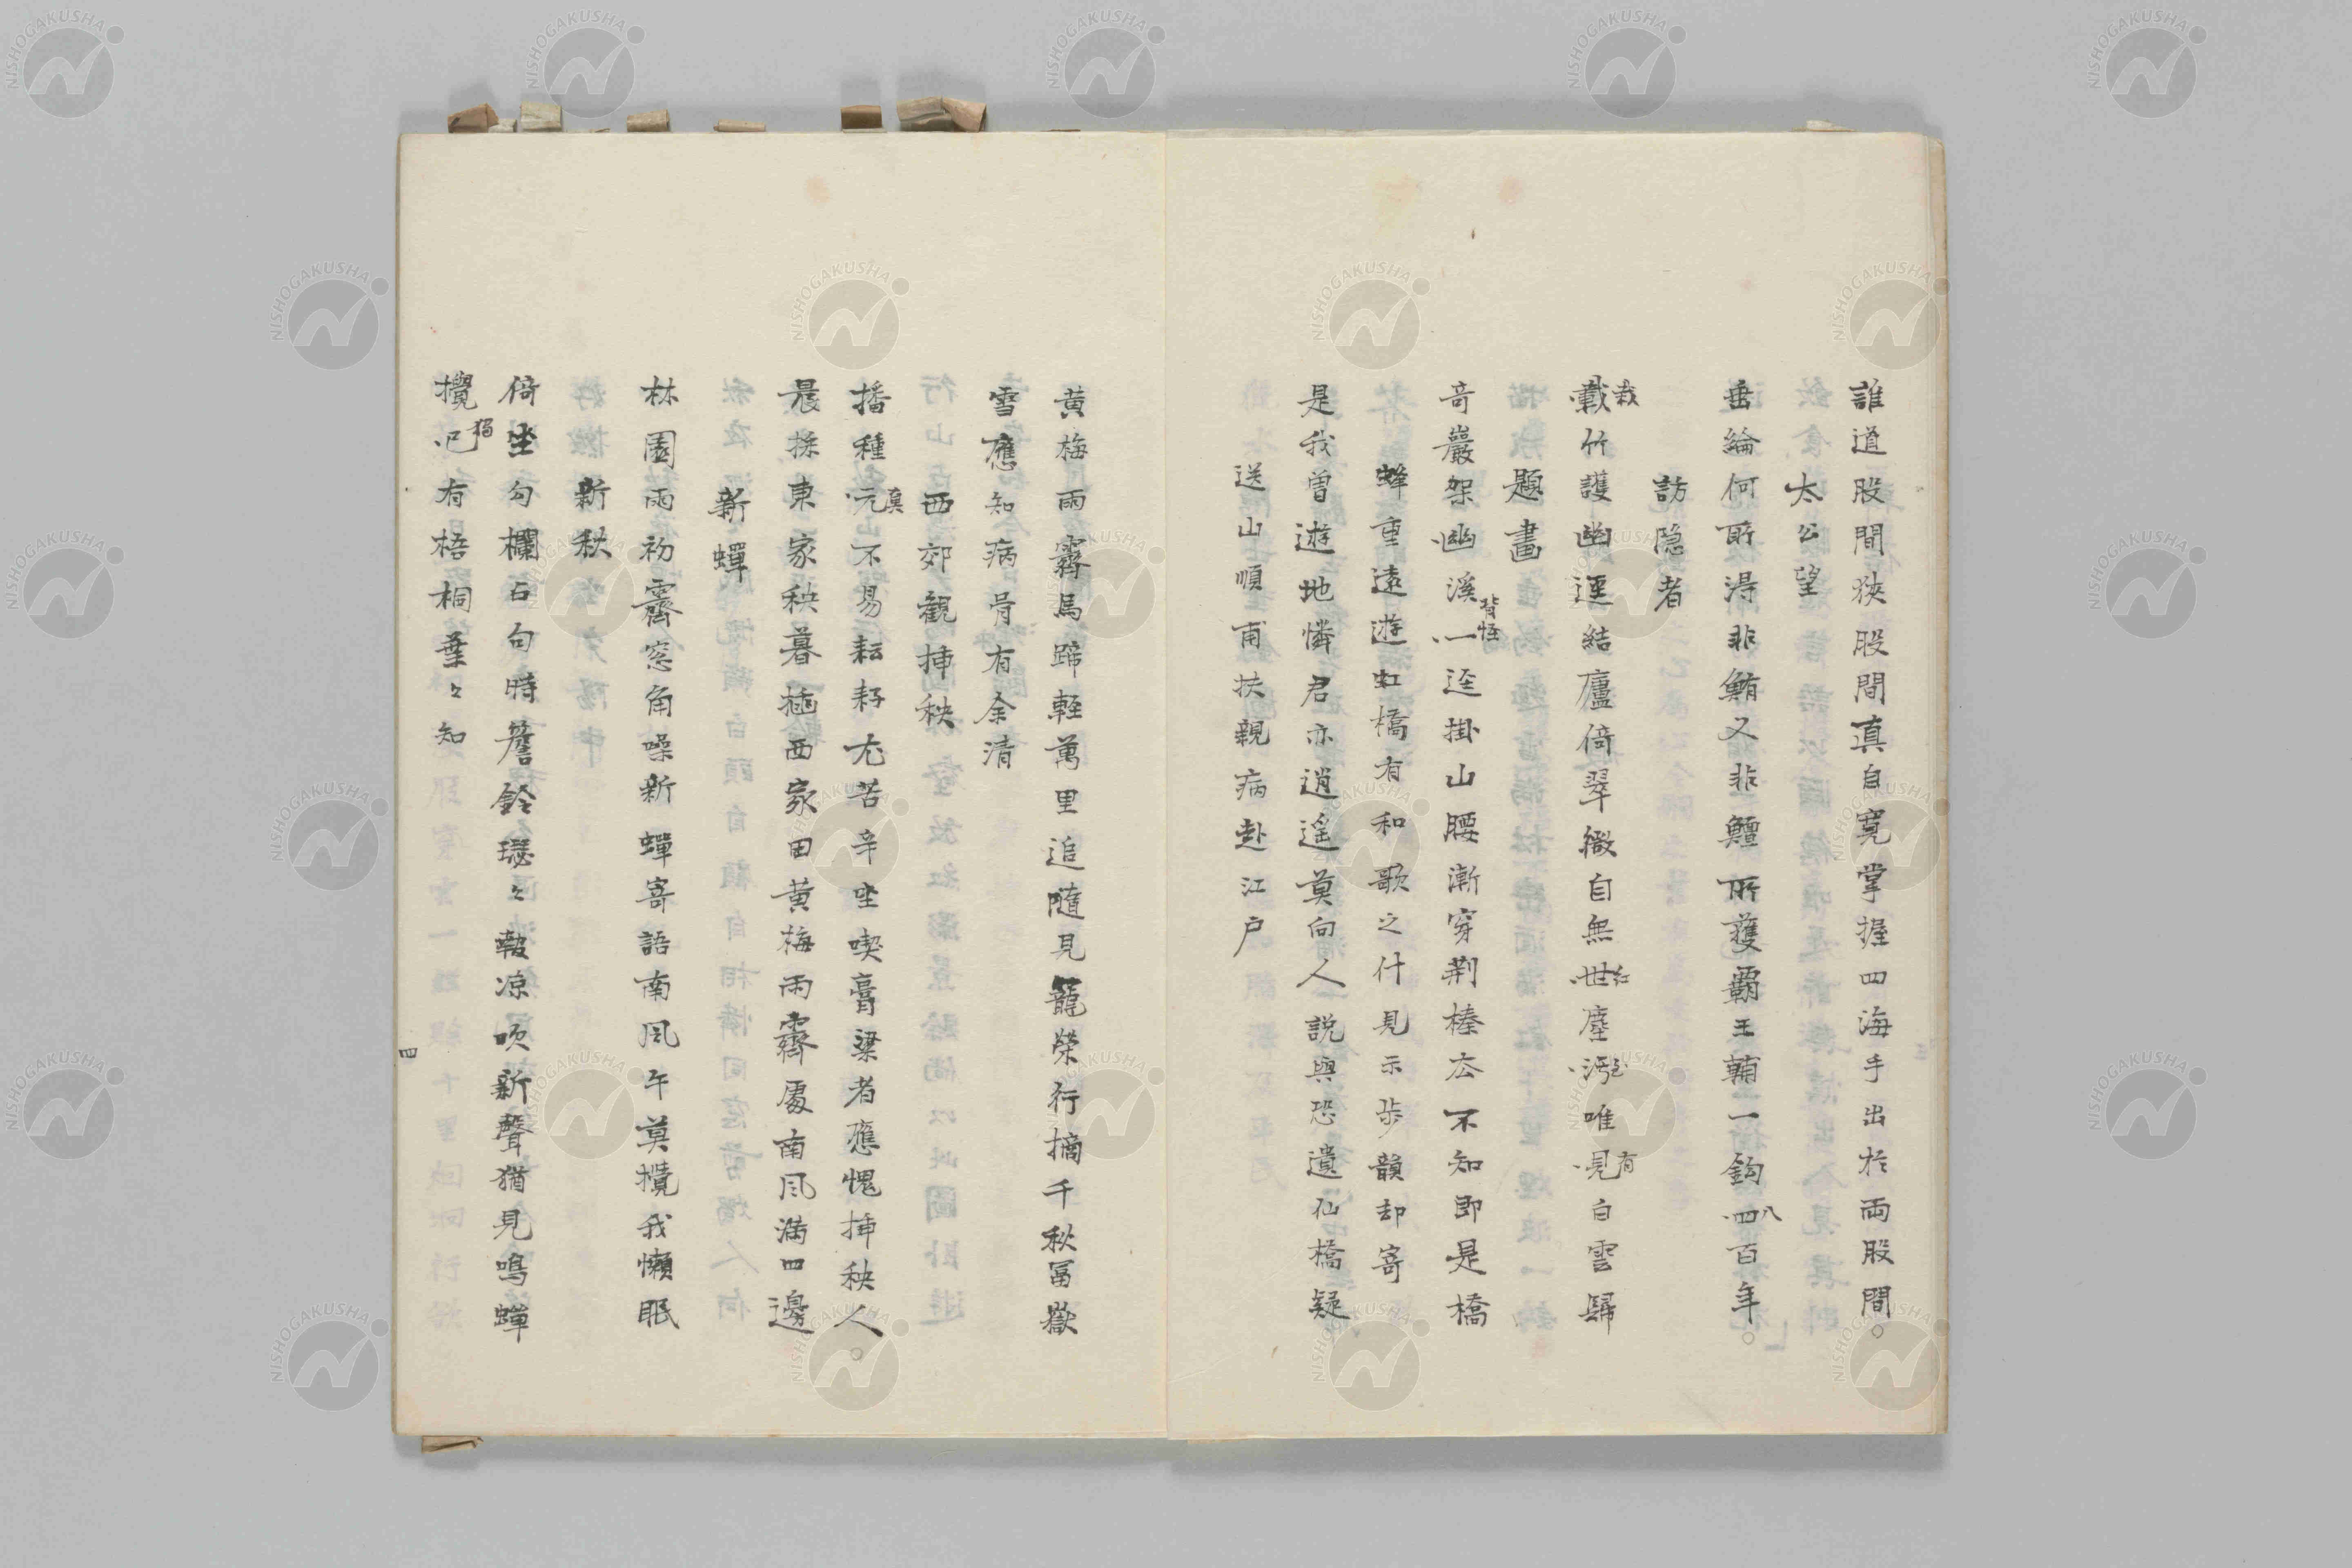 誰道股間狹股間真自寛掌握四海手出於両股間。
太公望
垂綸何所淂非鮪又非鱣所獲覇王輔一鈎四百年。
八
訪隠者
載竹護幽逕結廬倚翠微自無世塵汚唯見白雲歸
栽
紅
到
有
題畫
竒巖架幽溪一逕掛山腰漸穿荆榛去不知即是橋
背怪
蜂重遠遊虹橋有和歌之什見示歩韻却寄
是我曽遊地憐君亦逍遥莫向人説與恐遺仙橋疑
送山順甫扶親病赴江戸
黄梅雨霽馬蹄軽萬里追隨見寵榮行摘千秋冨嶽
雪應知病骨有余清
西郊観挿秧
播種元不易耘耔尤苦辛坐喫膏粱者應愧挿秧人。
真
晨採東家秧暮插西家田黄梅雨霽處南風満四邊
新蟬
林園雨初霽窓角噪新蟬寄語南風午莫攪我懶眠
新秋
倚坐勾欄占句時簷鈴瑟〻報凉吹新聲猶見鳴蟬
攪已有梧桐葉〻知
獨
四
NISHOGAKUSHA